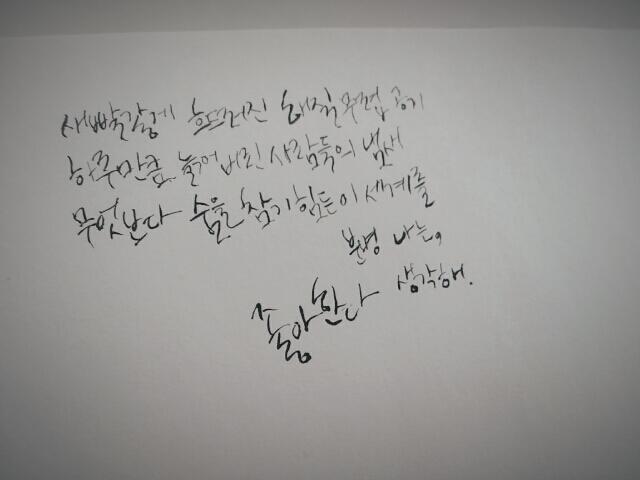 새빨갛게 흐드러진 해질무렵 공기
하루만큼 늙어버린 사람들의 냄새
무엇보다 숨을 참기 힘든 이 세계를
분명 나는,
좋아한다 생각해.